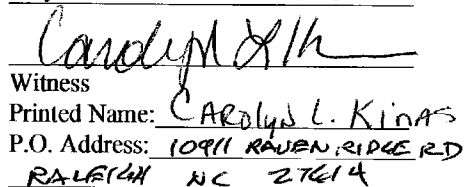 Witness
Printed Name: CAROLYN L. KINAS
P.O. Address: 10911 RAVEN RIDGE RD
RALEIGH NC 27614